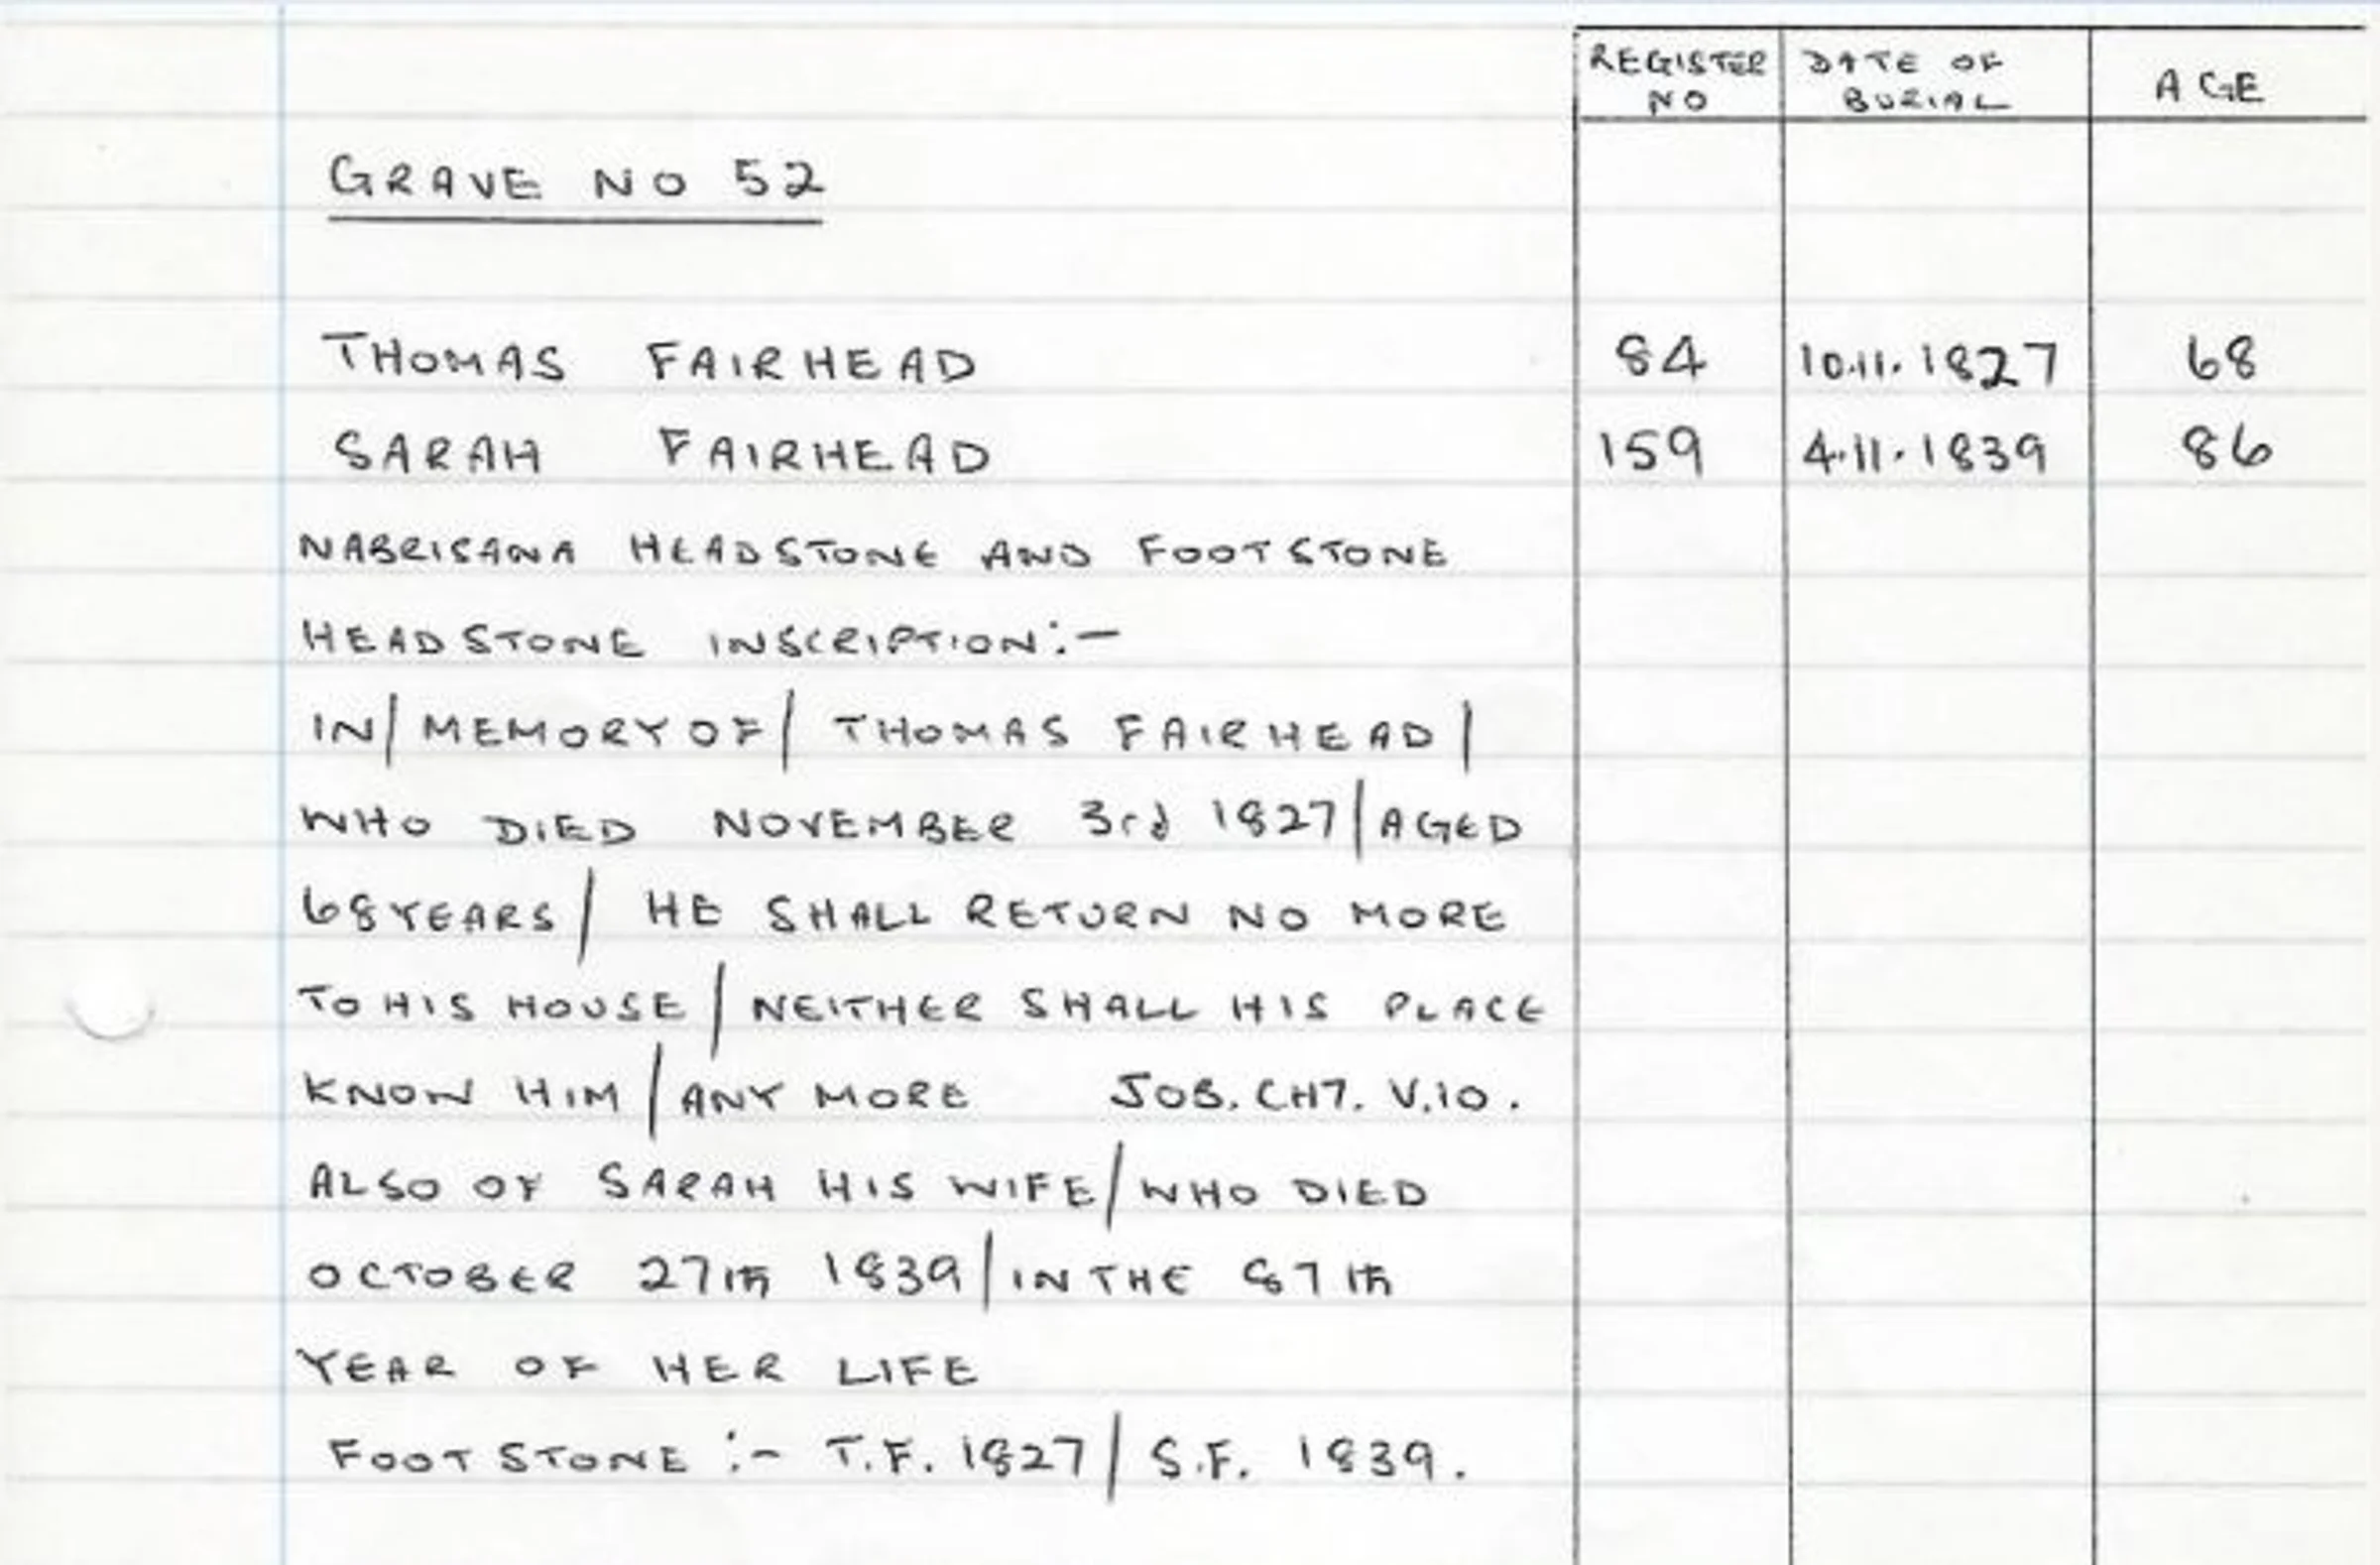 REGISTER NO DATE OF BURIAL AGE
GRAVE NO 52
THOMAS FAIRHEAD 84 10.11.1827 68
SARAH FAIRHEAD 159 4.11.1839 86
NABRISANA HEADSTONE AND FOOTSTONE
HEADSTONE INSCRIPTION:-
IN/MEMORY OF/ THOMAS FAIRHEAD/
WHO DIED NOVEMBER 3rd 1827/AGED
68 YEARS/ HE SHALL RETURN NO MORE
TO HIS HOUSE/NEITHER SHALL HIS PLACE
KNOW HIM/ANY MORE JOB. CH7. V.10.
ALSO OF SARAH HIS WIFE/WHO DIED
OCTOBER 27th 1839/IN THE 87th
YEAR OF HER LIFE
FOOTSTONE :- T.F. 1827/ S.F. 1839.